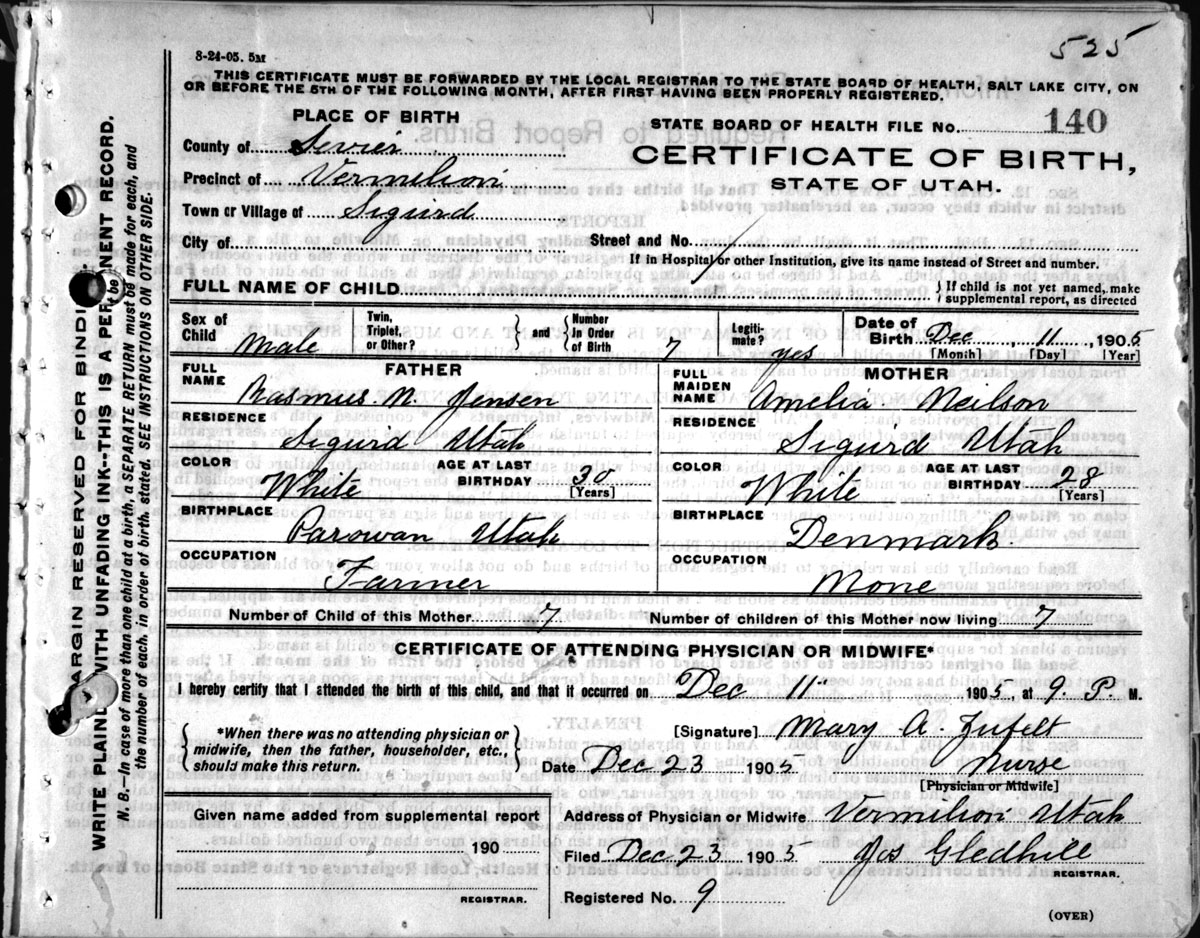 525
8-24-05. 5M
THIS CERTIFICATE MUST BE FORWARDED BY THE LOCAL REGISTRAR TO THE STATE BOARD OF HEALTH, SALT LAKE CITY, ON
OR BEFORE THE 5TH OF THE FOLLOWING MONTH, AFTER FIRST HAVING BEEN PROPERLY REGISTERED.
PLACE OF BIRTH
County of Sevier
Precinct of Vermilion
Town or Village of Sigurd
City of
STATE BOARD OF HEALTH FILE NO. 140
CERTIFICATE OF BIRTH,
STATE OF UTAH.
Street and No.
If in Hospital or other Institution, give its name instead of Street and number.
FULL NAME OF CHILD
If child is not yet named, make
supplemental report, as directed
Sex of Child Male
Twin, Triplet, or Other? and Number In Order of Birth 7
Legiti-mate? yes
Date of Birth Dec 11, 1905
[Month] [Day] [Year]
FATHER
FULL NAME Rasmus N. Jensen
RESIDENCE Sigurd Utah
COLOR White AGE AT LAST BIRTHDAY 30 [Years]
BIRTHPLACE Parowan Utah
OCCUPATION Farmer
MOTHER
FULL MAIDEN NAME Amelia Neilson
RESIDENCE Sigurd Utah
COLOR White AGE AT LAST BIRTHDAY 28 [Years]
BIRTHPLACE Denmark.
OCCUPATION None
Number of Child of this Mother 7 Number of children of this Mother now living 7
CERTIFICATE OF ATTENDING PHYSICIAN OR MIDWIFE*
I hereby certify that I attended the birth of this child, and that it occurred on Dec 11 1905, at 9. P. M.
*When there was no attending physician or
midwife, then the father, householder, etc.,
should make this return.
[Signature] Mary A. Zufelt
Date Dec 23 1905 Nurse
[Physician or Midwife]
Given name added from supplemental report
190
REGISTRAR.
Address of Physician or Midwife Vermilion Utah
Filed Dec 23 1905 Jos Gledhill
REGISTRAR.
Registered No. 9
(OVER)
MARGIN RESERVED FOR BINDING
WRITE PLAINLY WITH UNFADING INK--THIS IS A PERMANENT RECORD.
N. B.--In case of more than one child at a birth, a SEPARATE RETURN must be made for each, and
the number of each, in order of birth, stated. SEE INSTRUCTIONS ON OTHER SIDE.